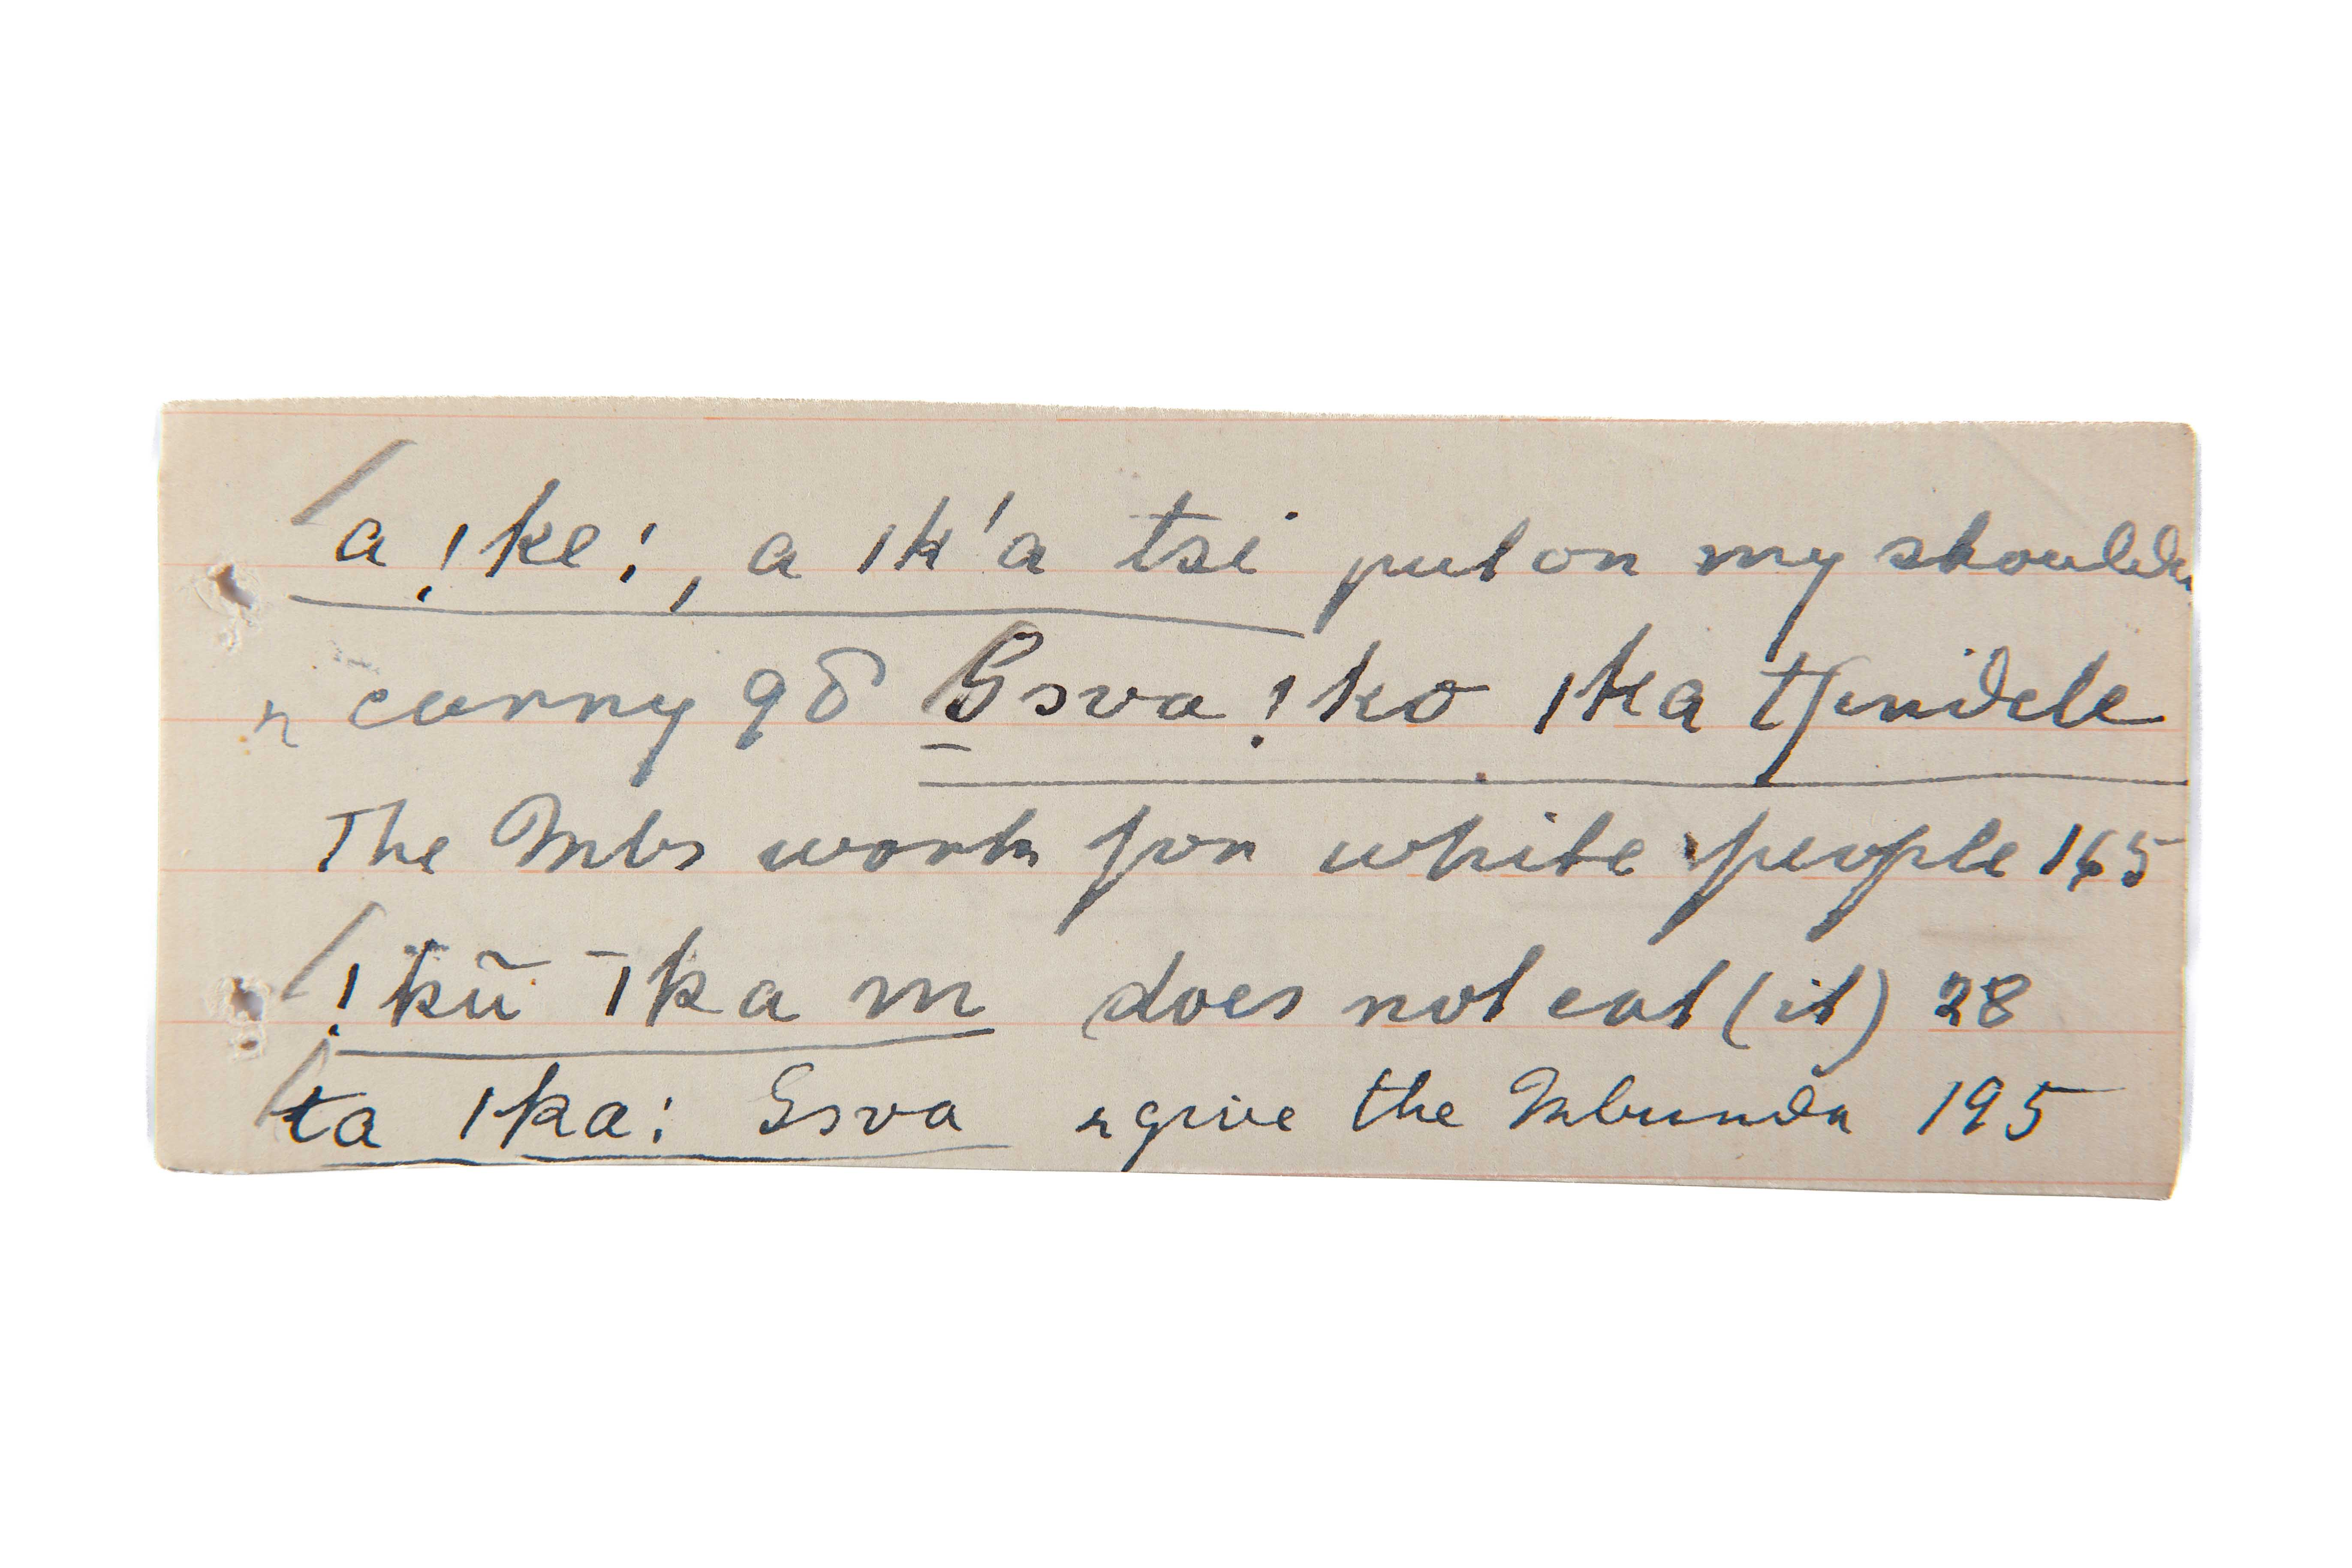 a !ke:, a ǀk'a tsi put on my shoulder
& carry 98 Gsva !ko ǀka tʃindele
The Mbs work for white people 165
!kũ ǀka m does not eat (it) 28
ta ǀka: Gsva & give the Mbunda 195